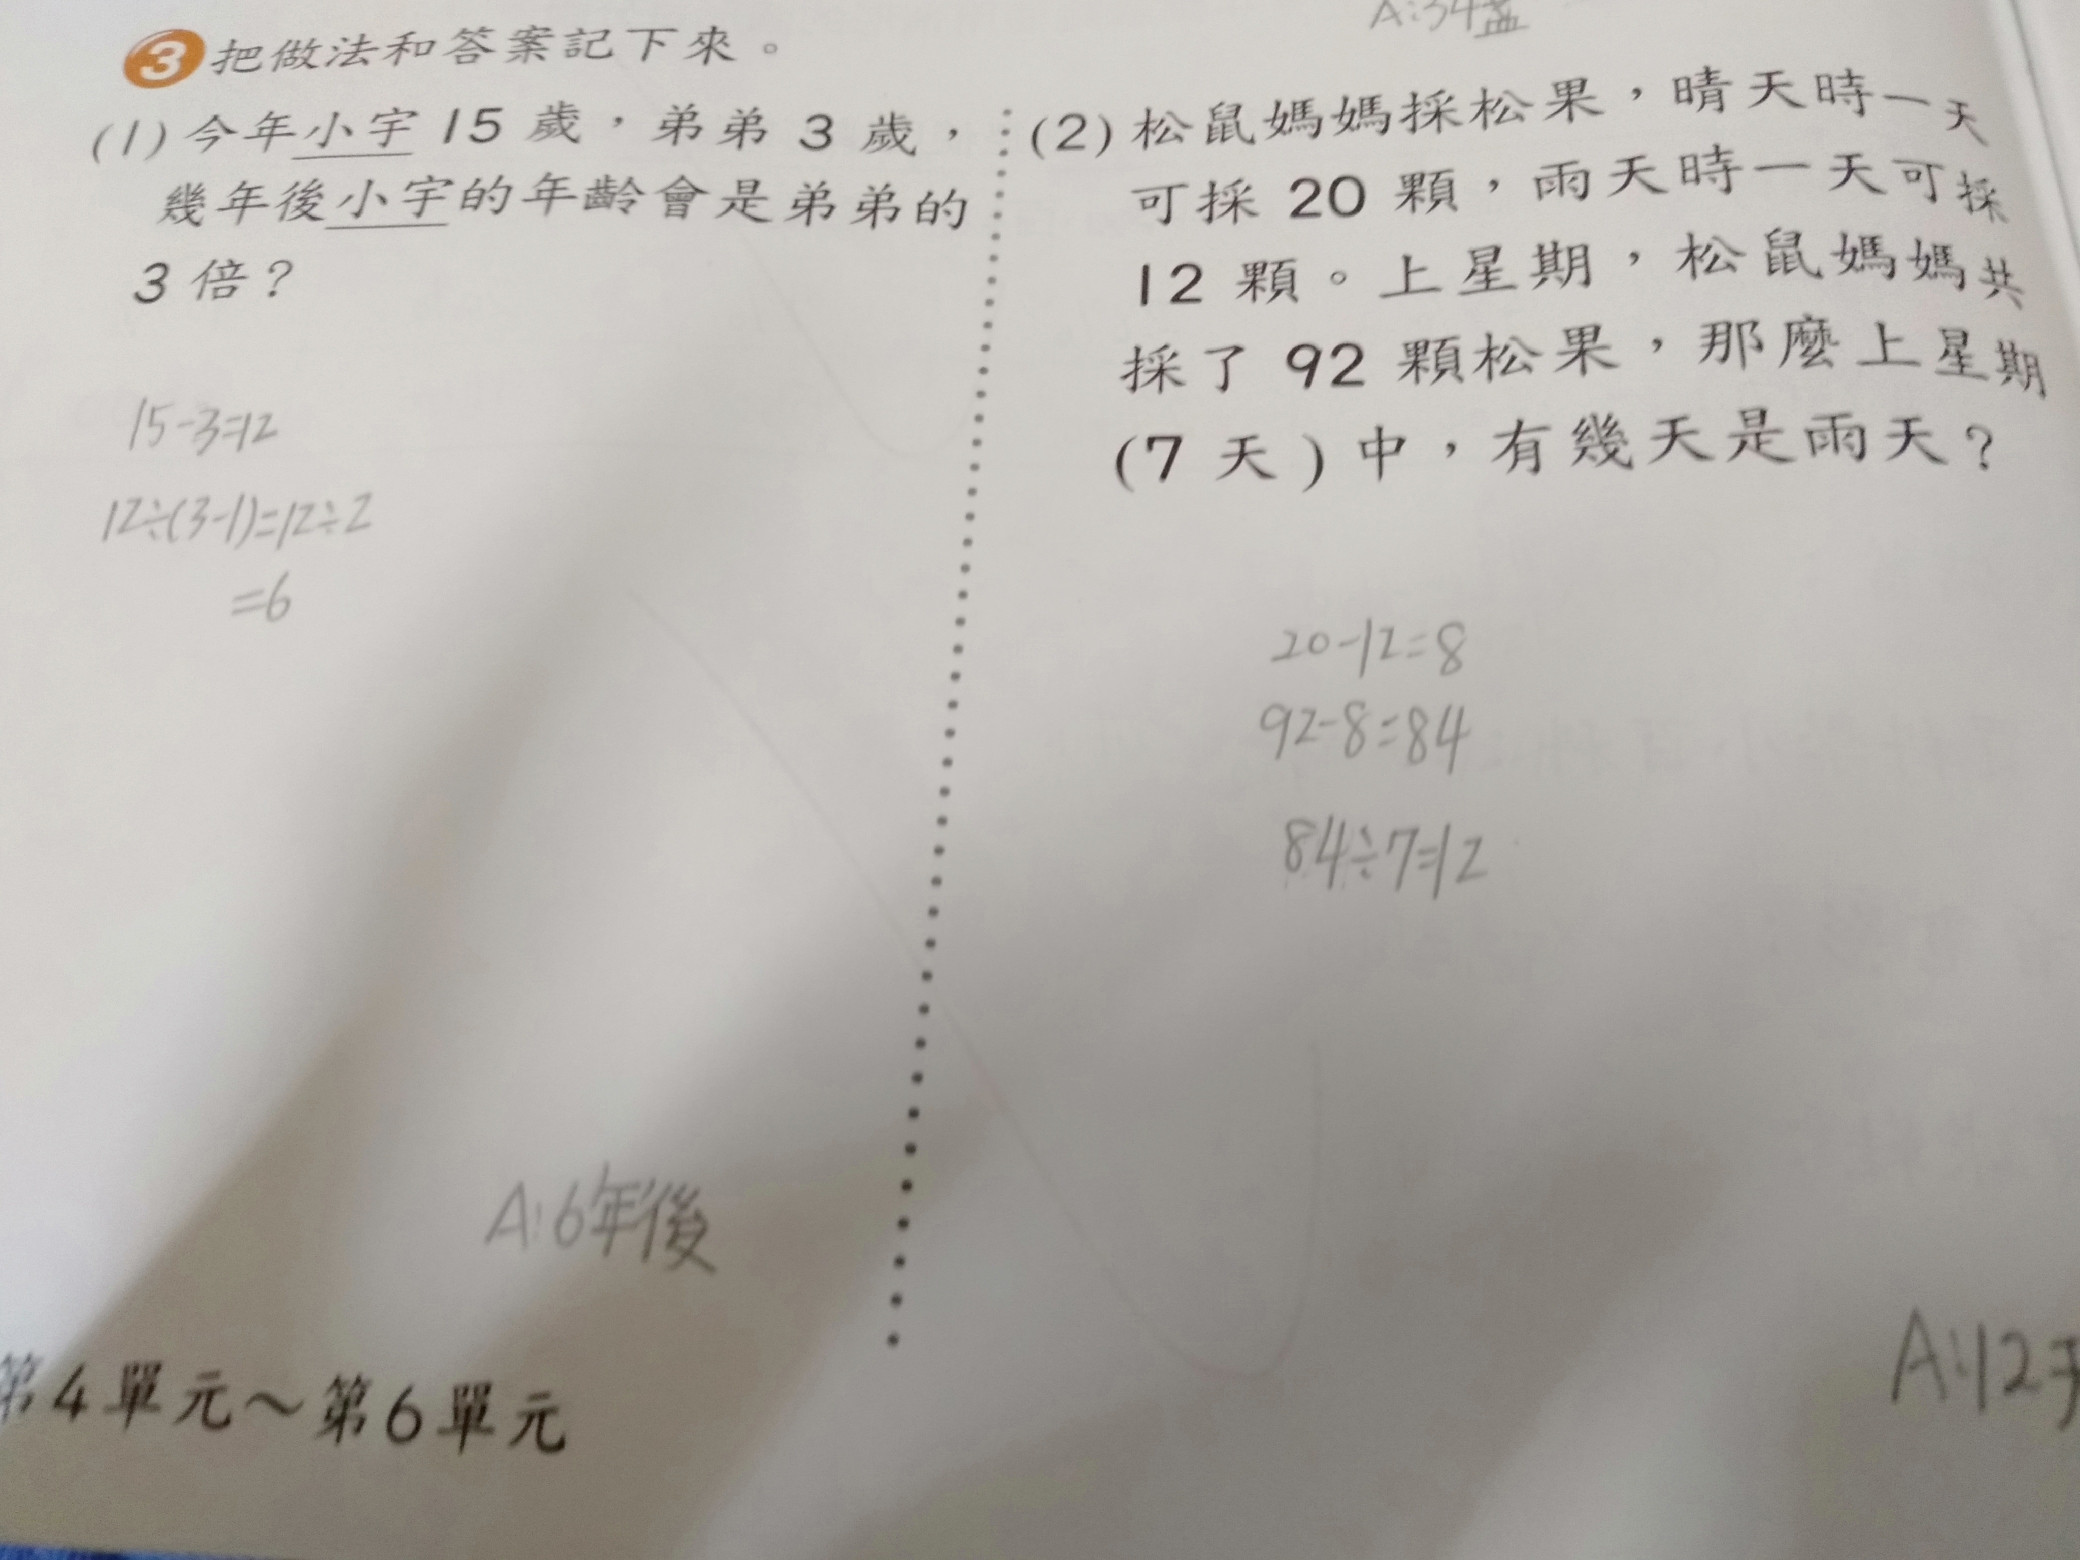 A:34盏
3 把做法和答案記下來。
(1) 今年小宇 15 歲，弟弟 3 歲，
幾年後小宇的年齡會是弟弟的
3 倍？
15-3=12
12÷(3-1)=12÷2
=6
A:6年後
(2) 松鼠媽媽採松果，晴天時一天
可採 20 顆，雨天時一天可採
12 顆。上星期，松鼠媽媽共
採了 92 顆松果，那麼上星期
(7 天) 中，有幾天是雨天？
20-12=8
92-8=84
84÷7=12
A:12天
第4單元～第6單元